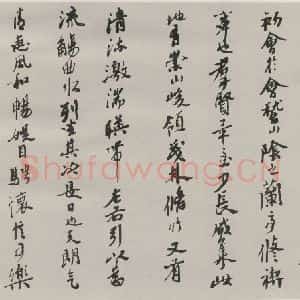 初會於會稽山陰之蘭亭修禊
事也羣賢畢至少長咸集此
地有崇山峻領茂林脩竹又有
清流激湍暎帶左右引以為
流觴曲水列坐其次是日也天朗氣
清惠風和暢娛目騁懷信可樂
Shufawang.Cn